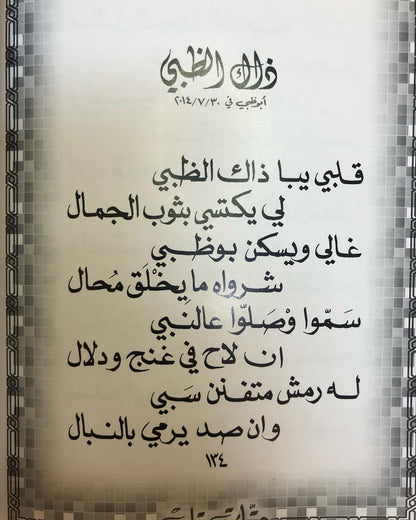 ذاك الظبي
أبوظبي في ٢٠١٤/٧/٣٠
قلبي يبا ذاك الظبي
لي يكتسي بثوب الجمال
غالي ويسكن بوظبي
شرواه ما يخْلَق مُحال
سَمّوا وْصَلوّا عالنَبي
ان لاح في غنج ودلال
له رمش متفنن سَبي
وان صد يرمي بالنبال
١٣٤